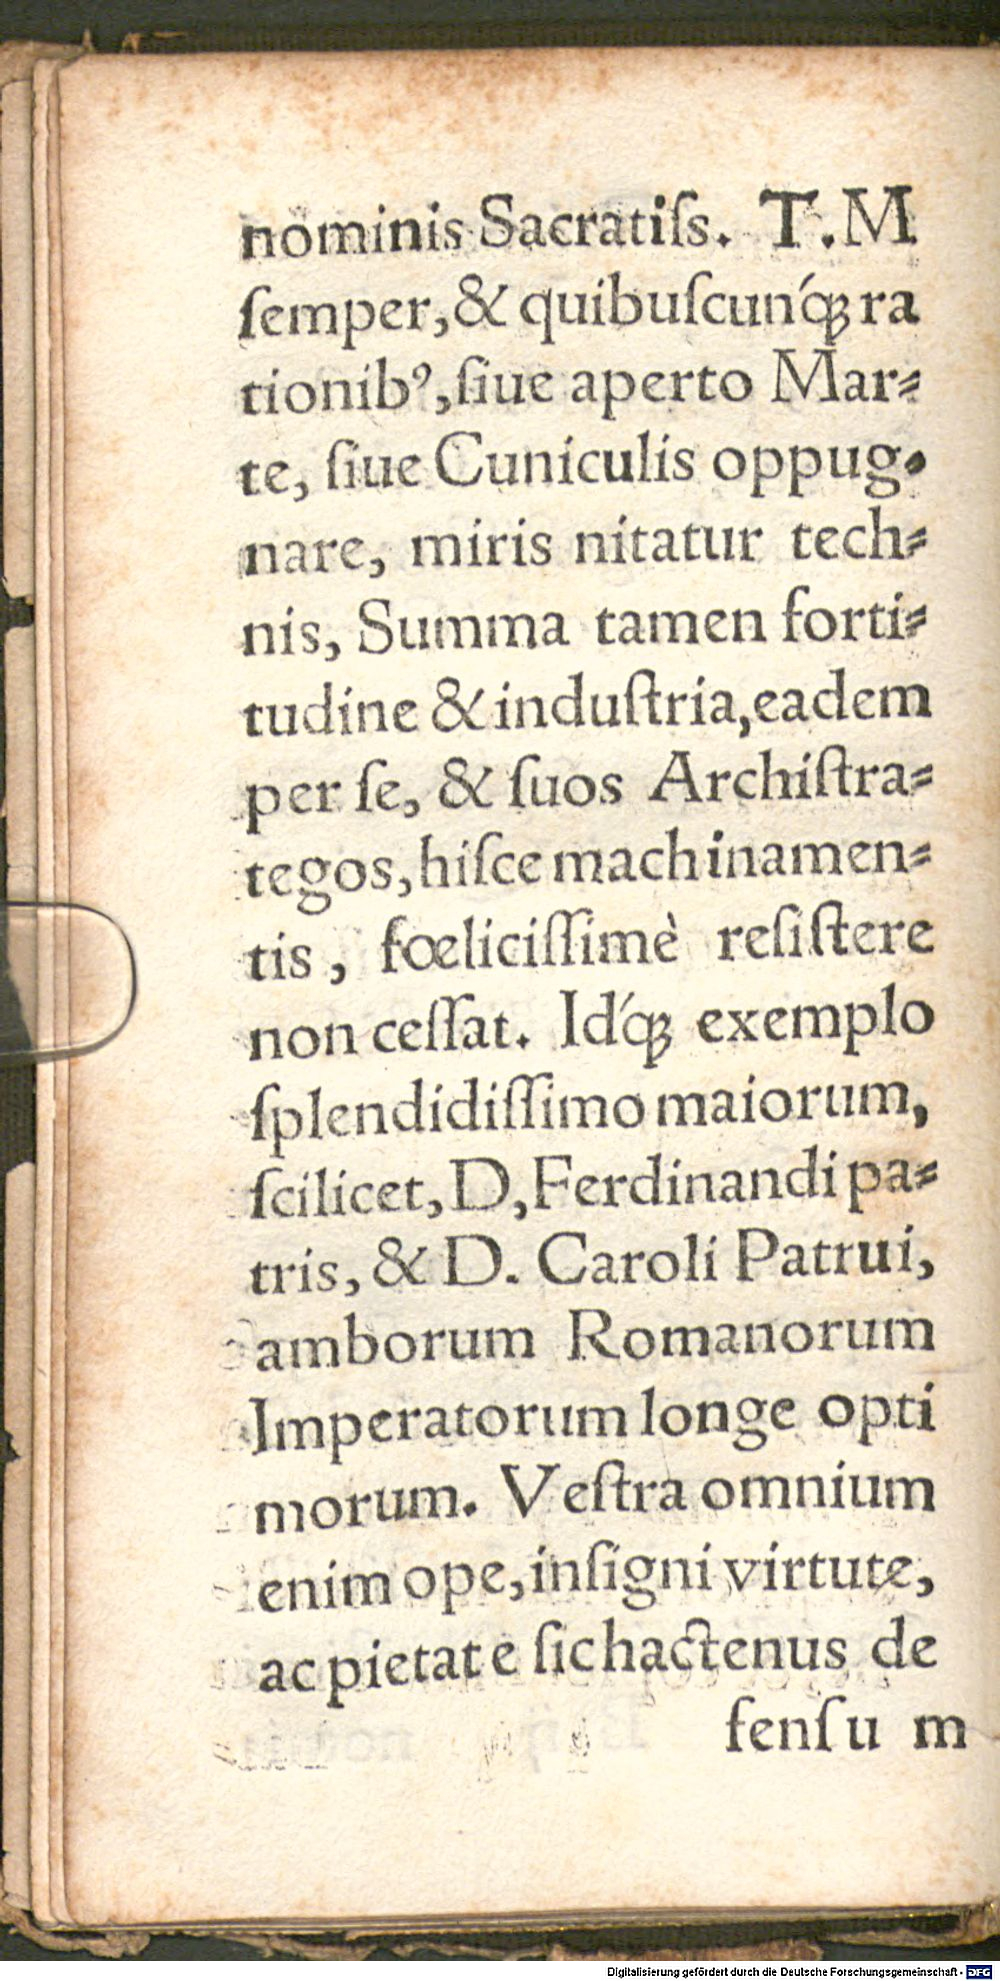 nominis Sacratiſs. T.M
ſemper, & quibuſcunq́ꝫ ra
tionibꝰ, ſiue aperto Mar⸗
te, ſiue Cuniculis oppug⸗
nare, miris nitatur tech⸗
nis, Summa tamen forti⸗
tudine & induſtria, eadem
per ſe, & ſuos Archiſtra⸗
tegos, hiſce machinamen⸗
tis, fœliciſſimè reſiſtere
non ceſſat. Idq́ꝫ exemplo
ſplendidiſſimo maiorum,
ſcilicet, D, Ferdinandi pa⸗
tris, & D. Caroli Patrui,
amborum Romanorum
Imperatorum longe opti
morum. Veſtra omnium
enim ope, inſigni virtute,
ac pietate ſic hactenus de
fenſu m
Digitalisierung gefördert durch die Deutsche Forschungsgemeinschaft - DFG